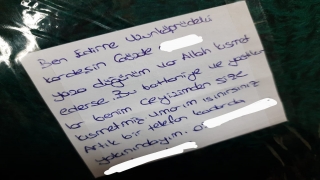 Ben Edirne Uzunköprüdeki
kardeşin Gözde
yaza düğünüm var Allah kısmet
ederse. Bu battaniye ve yastıklar
benim Ceyizimden size
kısmetmiş umarım ısınırsınız
Artık bir telefon kadarda
yakınındayım.